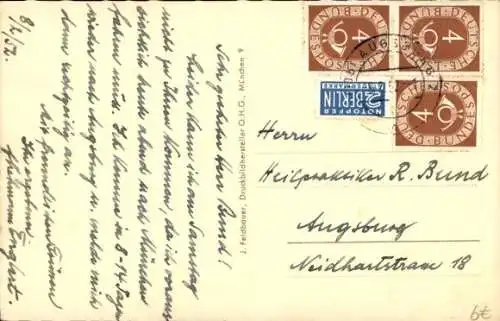 Sehr geehrter Herr Bund!
Leider kann ich am Samstag
nicht zu Ihnen kommen, da ich voraus-
sichtlich heute abend nach München
fahren muß. Ich komme in 8-14 Tagen
wieder nach Augsburg u. melde mich
dann
an.
Mit freundlichen Grüssen
Ihr
8/2.52.
J. Feldbauer, Druckbildhersteller O.H.G., München 9
DEUTSCHE BUNDESPOST
4
DEUTSCHE BUNDESPOST
4
DEUTSCHE BUNDESPOST
4
NOTOPFER
2 BERLIN
STEUERMARKE
AUGSBURG
Herrn
Heilpraktiker R. Bund
Augsburg
Neidhartstrasse 18
6€